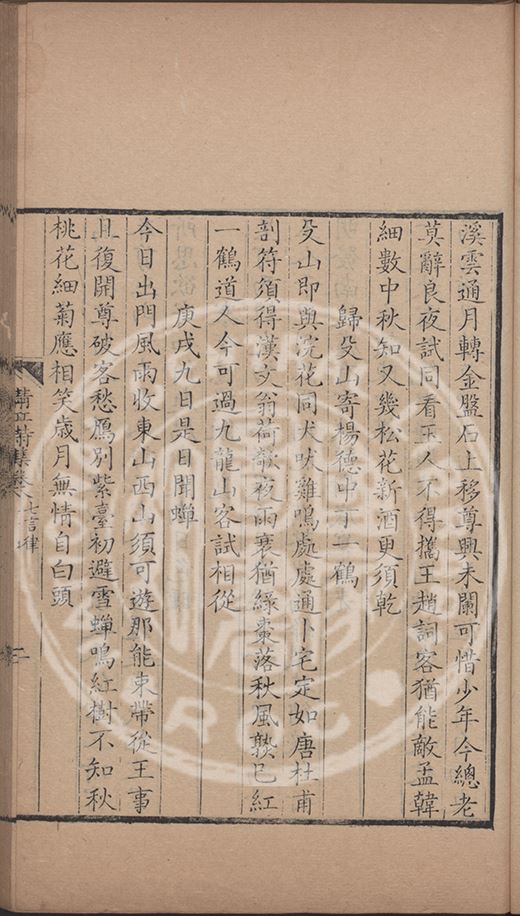 溪雲通月轉金盤石上移尊興未闌可惜少年今總老
莫辭良夜試同看玉人不得攜王趙詞客猶能敵孟韓
細數中秋知又幾松花新酒更須乾
歸殳山寄楊德中丁一鶴
殳山即與浣花同犬吠雞鳴處處通卜宅定如唐杜甫
剖符須得漢文翁荷欹夜雨衰猶綠棗落秋風熟已紅
一鶴道人今可過九龍山客試相從
庚戌九日是日聞蟬
今日出門風雨收東山西山須可遊那能束帶從王事
且復開尊破客愁鴈別紫臺初避雪蟬鳴紅樹不知秋
桃花細菊應相笑歲月無情自白頭
清江詩集卷八 七言律
二